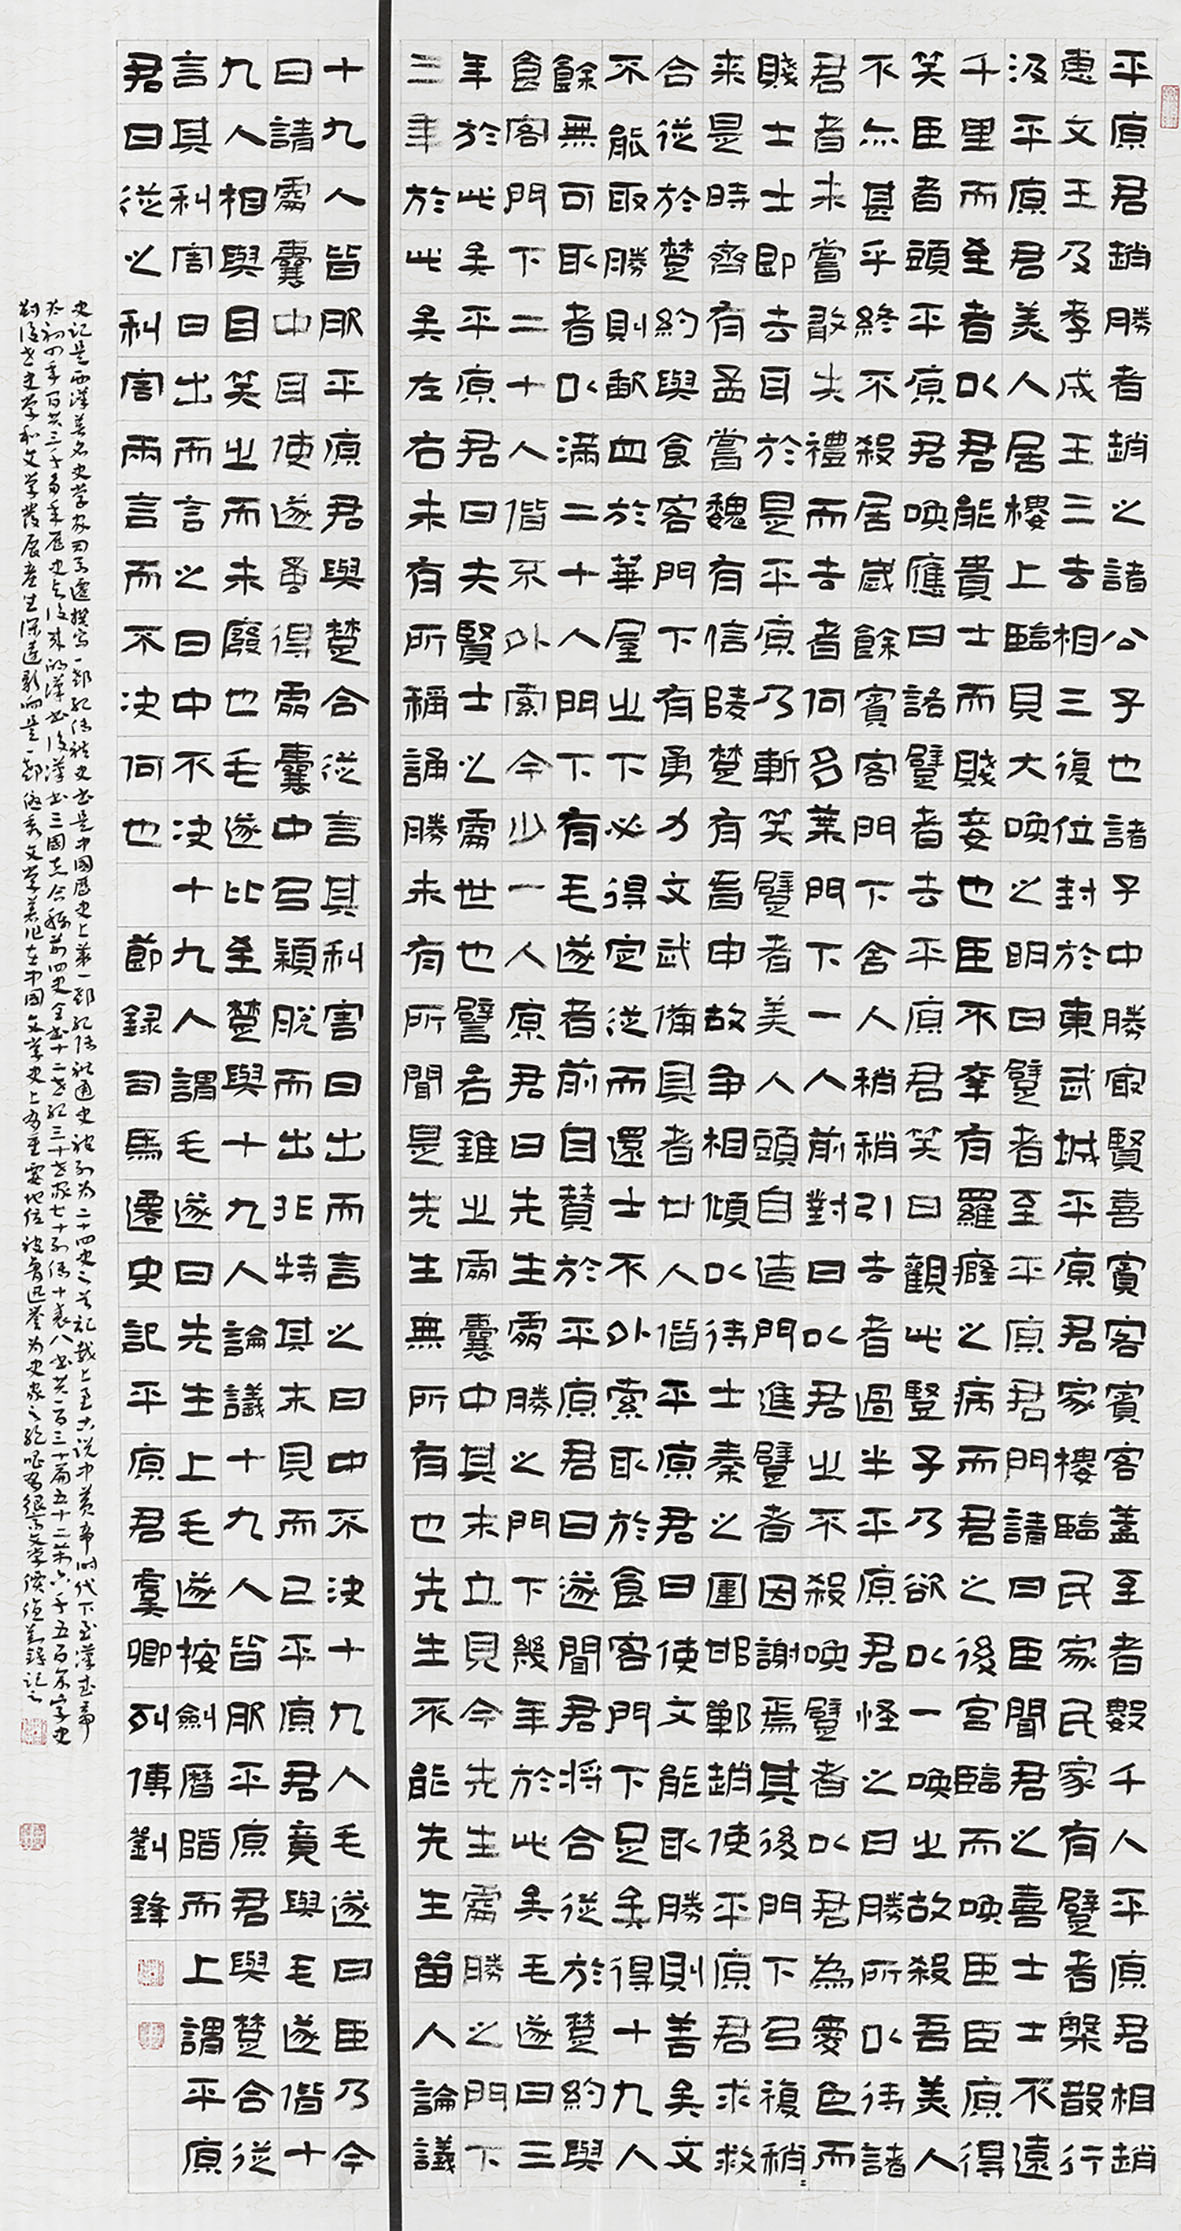 平原君趙勝者趙之諸公子也諸子中勝冣賢喜賓客賓客蓋至者數千人平原君相趙
惠文王及孝成王三去相三復位封於東武城平原君家樓臨民家民家有躄者槃散行
汲平原君美人居樓上臨見大咲之明日躄者至平原君門請曰臣聞君之喜士士不遠
千里而至者以君能貴士而賤妾也臣不幸有羅癃之病而君之後宮臨而咲臣臣原得
笑臣者頭平原君咲應曰諾躄者去平原君笑曰觀此豎子乃欲以一咲之故殺吾美人
不亦甚乎終不殺居歲餘賓客門下舍人稍稍引去者過半平原君怪之曰勝所以待諸
君者未嘗敢失禮而去者何多葉門下一人前對曰以君之不殺咲躄者以君為愛色而
賤士士即去耳於是平原乃斬笑躄者美人頭自造門進躄者因謝焉其後門下乃復稍〻
来是時齊有孟嘗魏有信陵楚有春申故爭相傾以待士秦之圍邯鄲趙使平原君求救
合從於楚約與食客門下有勇力文武備具者廿人偕平原君曰使文能取勝則善矣文
不能取勝則歃血於華屋之下必得定從而還士不外索取於食客門下足矣得十九人
餘無可取者以滿二十人門下有毛遂者前自贊於平原君曰遂聞君將合從於楚約與
食客門下二十人偕不外索今少一人原君曰先生處勝之門下幾年於此矣毛遂曰三
年於此矣平原君曰夫賢士之處世也譬若錐之處囊中其末立見今先生處勝之門下
三年於此矣左右未有所稱誦勝未有所聞是先生無所有也先生不能先生留人論議
十九人皆服平原君與楚合從言其利害日出而言之日中不決十九人毛遂曰臣乃今
日請處囊中耳使遂蚤得處囊中乃穎脫而出非特其末見而已平原君竟與毛遂偕十
九人相與目笑之而未廢也毛遂比至楚與十九人論議十九人皆服平原君與楚合從
言其利害日出而言之日中不決十九人謂毛遂曰先生上毛遂按劍曆階而上謂平原
君曰從之利害兩言而不決何也 節録司馬遷史記平原君虞卿列傳劉鋒
史記是西漢著名史學家司馬遷撰寫一部紀傳體史書是中國歷史上第一部紀傳體通史被列為二十四史之首記載上至上古傳說中黃帝時代下至漢武帝
太初四年間共三千多年歷史與後來的漢書後漢書三國志合稱前四史全書十二本紀三十世家七十列傳十表八書共一百三十篇五十二萬六千五百餘字史
對後世史學和文學發展產生深遠影響是一部優秀文學著作在中國文學史上有重要地位被魯迅譽為史家之絕唱有很高文學價值劉鋒記之